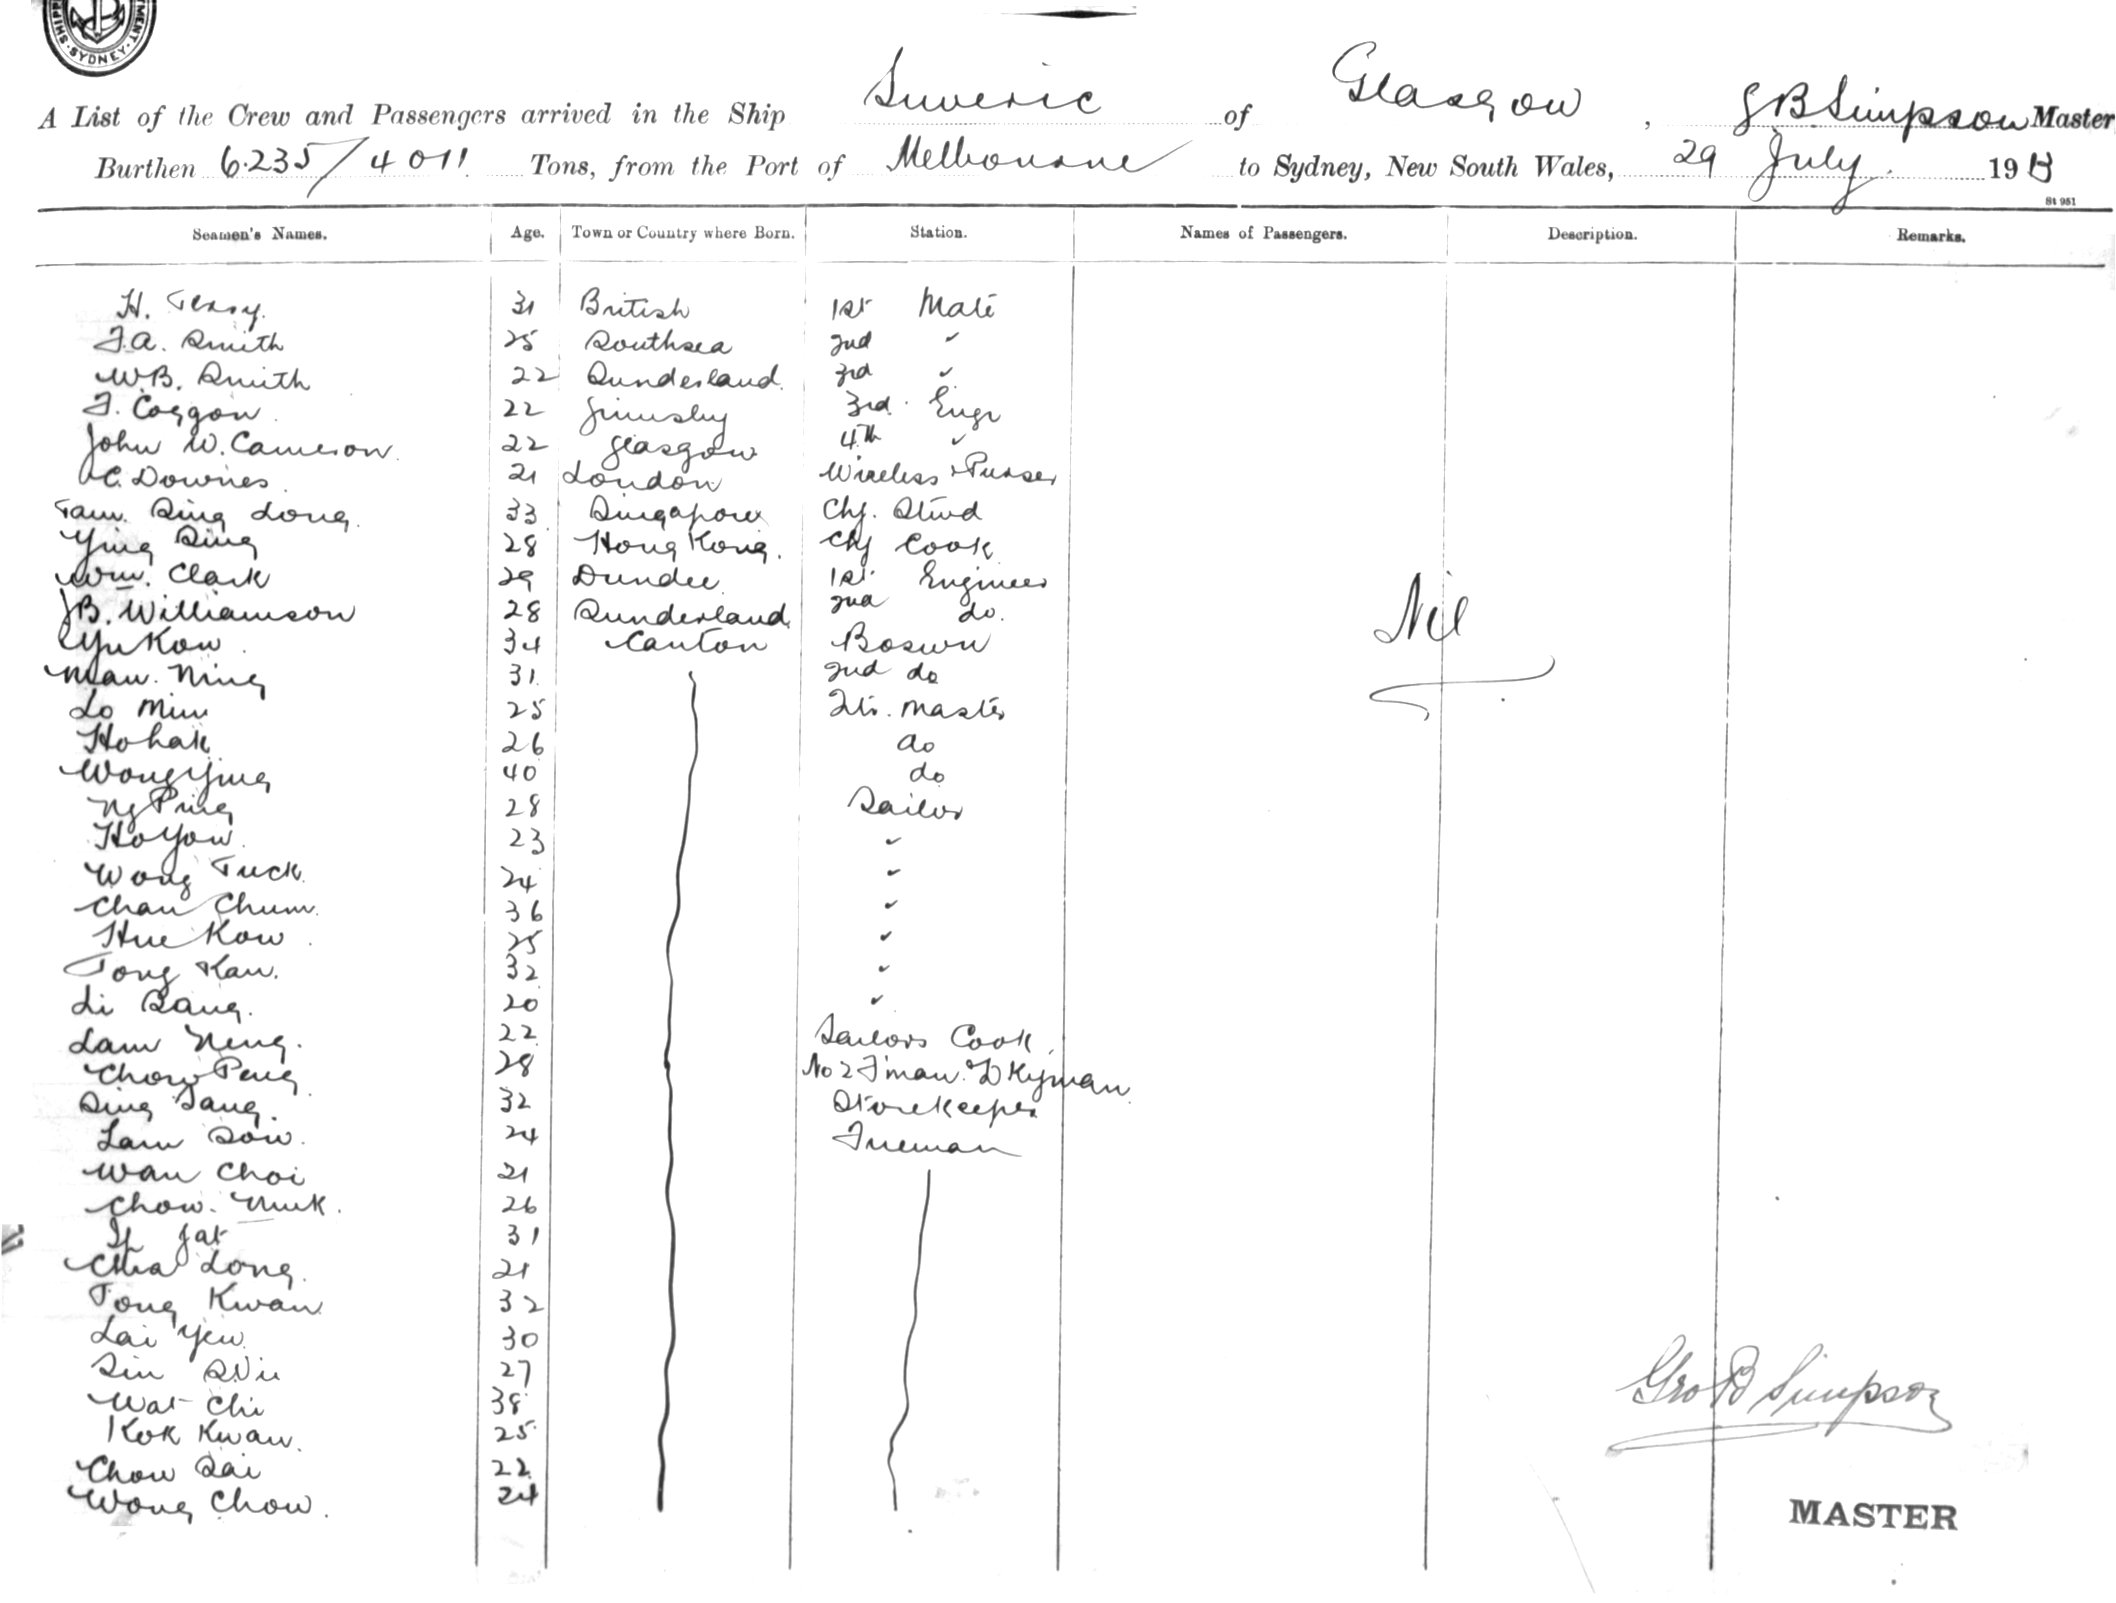 SHIPP MENT
·SYDNEY·
A List of the Crew and Passengers arrived in the Ship Suveric of Glasgow, G B Simpson Master
Burthen 6·235/4011 Tons, from the Port of Melbourne to Sydney, New South Wales, 29 July 19
St 951
Seamen's Names. Age. Town or Country where Born. Station. Names of Passengers. Description. Remarks.
H. 31 British 1st Mate
F.A. Smith 25 Southsea 2nd "
W.B. Smith 22 Sunderland 3rd "
F. Coggon 22 Grimsby 3rd. Engr
John W. Cameron. 22 Glasgow 4th "
C. Downes. 21 London Wireless & Purser
Tam. Sing Long. 33 Singapore Chf. Stwd
Ying Sing 28 Hong Kong. Chf Cook
Wm. Clark 29 Dundee 1st. Engineer
JB. Williamson 28 Sunderland 2nd do.
Yu Kow 34 Canton Boswn
Man. Ning 31. 2nd do
Lo Mim 25 Qtr. Master
Ho hak 26 do
Wong Ying 40 do
Ng Ping 28 Sailor
Ho Yow 23 "
Wong Tuck. 24 "
Chan Chum. 36 "
Hue Kow. 25 "
Tong Kau. 32 "
Li Sang. 20 "
Lam Neng. 22 Sailors Cook
Chow Peng 28 No 2 F'man & D Kyman
Sing Tang. 32 Storekeeper
Lam Sow. 24 Fireman
Wan Choi 21
Chow. Muk. 26
Ip Jat 31
Cha Long. 21
Tong Kwan 32
Lai Yew 30
Sin 27
Wat Chi 38
Kok Kwan. 25
Chow Sai 22
Wong Chow. 24
Nil
Geo B Simpson
MASTER